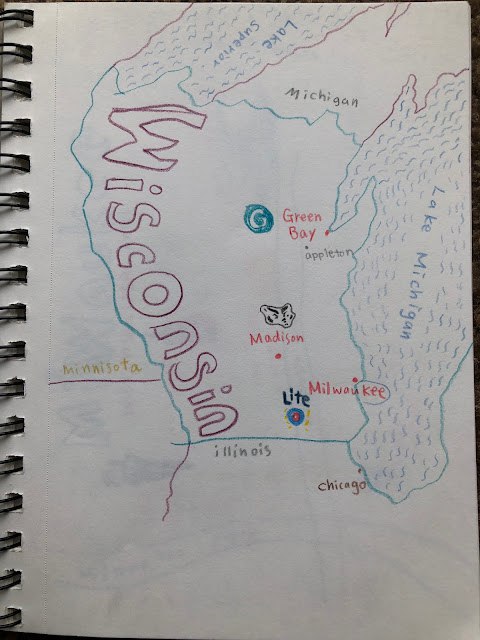 Lake
Superior
Michigan
Wisconsin
G
Green
Bay
appleton
Lake Michigan
Madison
Minnisota
Milwaukee
Lite
illinois
chicago